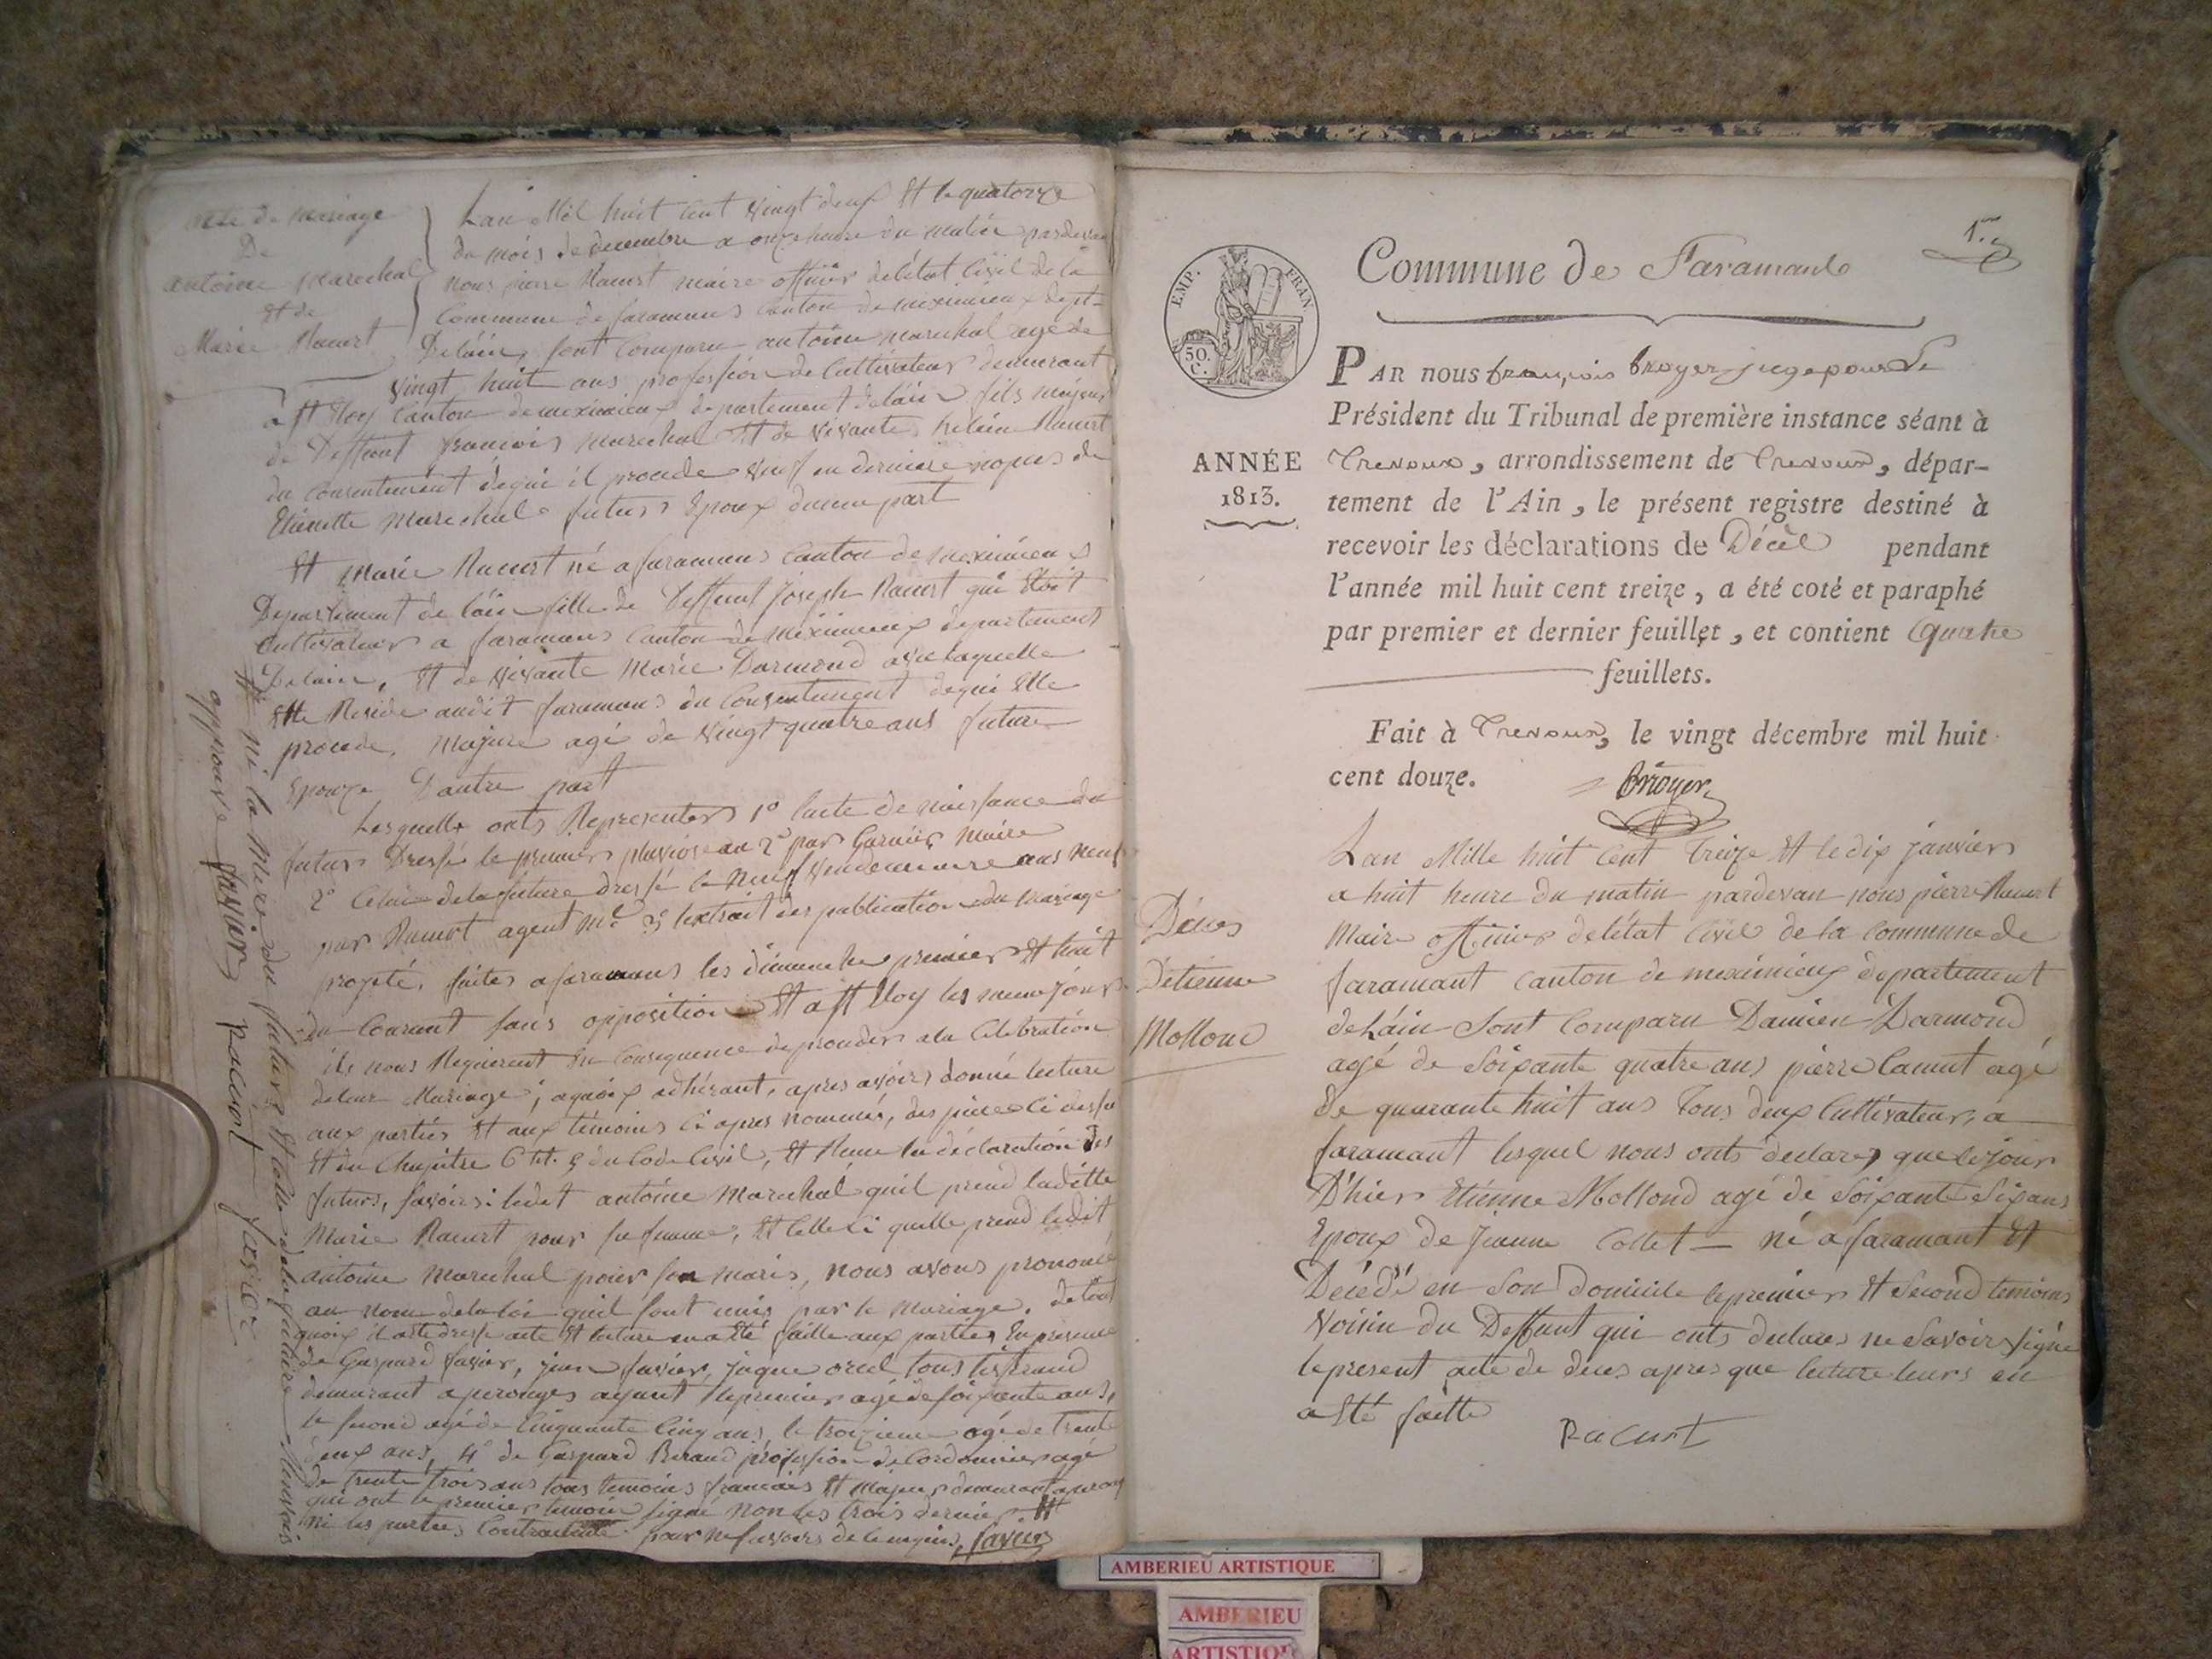 acte de mariage
De
antoine marechal
Et de
Marie Racurt
Lan Mil huit cent vingt deux Et le quatorze
du mois de decembre a onze heure du matin pardevan
nous pierre Racurt maire officier de létat Civil de la
Commune de faramans Canton de meximieux dept
Delain, sont Comparu antoine marechal agé de
vingt huit ans profession de Cultivateur demeurant
a St Eloy Canton de meximieux departement delain fils majeur
de Deffunt francois marechal Et de vivante helène Racurt
du Consentement de qui il procede veuf en derniere nopces de
Etiennette marechal futur Epoux dune part
Et Marie Racurt né a faramans Canton de meximieux
Departement de lain fille de Deffunt Joseph Racurt qui Etoit
Cultivateur a faramans Canton de meximieux departement
Delain, Et de vivante Marie Darmond avec laquelle
Elle Reside audit faramans du Consentement de qui Elle
procede, majeure agé de vingt quatre ans future
Epouze Dautre part
Lesquelle onts Representer 1º lacte de naissance du
futur Dressé le premier pluviose an 2º par Garnier maire
2º Celui de la future dressé le neuf vendemiaire ans neuf
par Racurt agent mal 3º lextrait des publication du mariage
projeté, faites a faramans les dimanche premier Et huit
du Courant sans opposition Et a St Eloy les meme jours
ils nous Requierent En Consequence de proceder a la Celebration
de leur Mariage; aquoix adhérant, apres avoir donné lecture
aux parties Et aux témoins Ci apres nommés, des pieces Ci dessu
Et du Chapitre 6 tit. 5 du Code Civil, Et Recue la déclaration des
futurs, savoir: ledit antoine Marechal quil prend laditte
Marie Racurt pour sa femme, Et Celle Ci quelle prend ledit
antoine Marechal pour son maris, nous avons prononcé
au nom de la loi quil sont unis par le mariage. de tout
quoix il a été dressé acte Et lecture en a Eté faitte aux parties En presence
de Gaspard favier, jean favier, jaque orcel tous tisserand
demeurant a perouges ayant le premier agé de soixante ans,
le second agé de Cinquante Cinq ans, le troizieme agé de trente
deux ans, 4º de Gaspard Beraud profession de Cordonnier agé
de trente trois ans tous temoins francais Et majeur demeurant a peroug
qui ont le premier temoin signé non les trois dernier Et
ni les parties Contractante pour ne savoir de Ce enquis, favier
Et ni la mere du futur Et Celle de la future
approuvé favier racurt favier
1.er
Commune de Faramant
EMP. FRAN.
50. C.
PAR nous françois broyer juge pour Le
Président du Tribunal de première instance séant à
ANNÉE
1813.
Trevoux, arrondissement de Trevoux, dépar-
tement de l'Ain, le présent registre destiné à
recevoir les déclarations de Décèl pendant
l'année mil huit cent treize, a été coté et paraphé
par premier et dernier feuillet, et contient quatre
feuillets.
Fait à Trevoux, le vingt décembre mil huit
cent douze.
Broyer
Décès
D'étienne
Mollond
Lan Mille huit Cent treize Et le dix janvier
a huit heure du matin pardevan nous pierre Racurt
Maire officier de létat Civil de la Commune de
faramant canton de meximieux departement
de Láin Sont Comparu Damien Darmond
agé de Soixante quatre ans pierre Camut agé
de quarante huit ans Tous deux Cultivateur, a
faramant lesquel nous onts declarez que le jour
D'hier Etienne Mollond agé de Soixante Six ans
Epoux de Jeanne Collet — né a faramant Et
Décedé en Son Domicile le premier Et Second temoins
voisin du Deffunt qui onts declares ne Savoir signé
le present acte de deces apres que lecture leurs en
a Eté faitte
Racurt
AMBERIEU ARTISTIQUE
AMBERIEU
ARTISTIQU